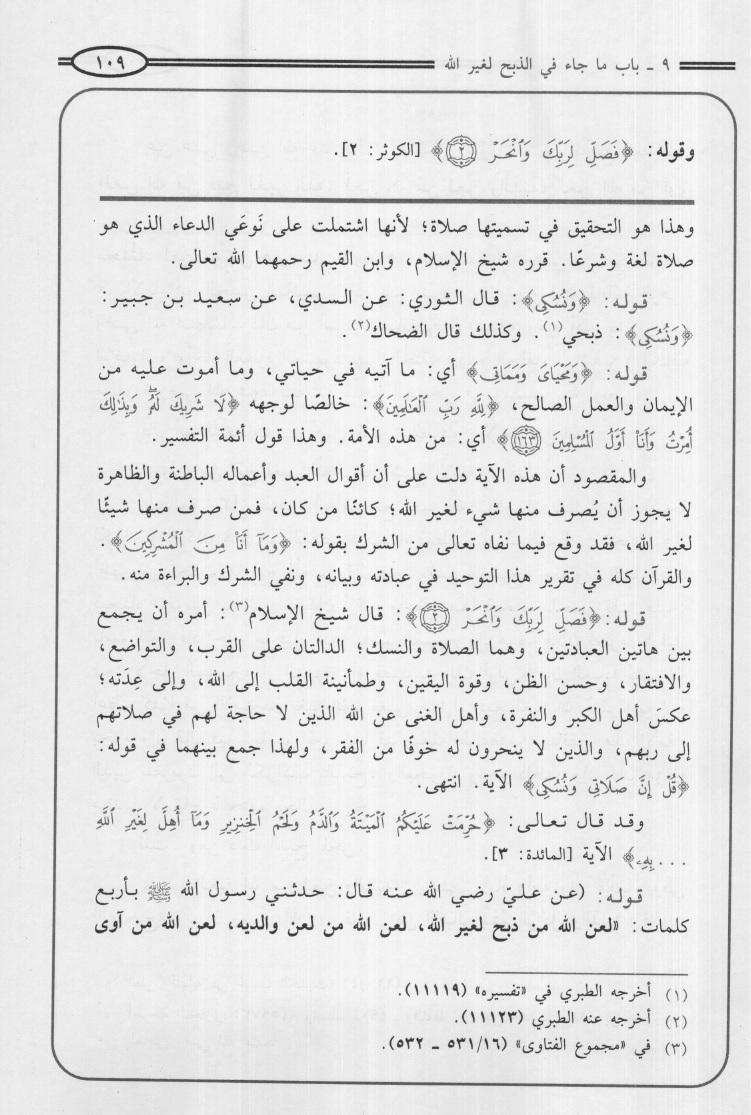 ٩ ـ باب ما جاء في الذبح لغير الله
١٠٩
وقوله: ﴿فَصَلِّ لِرَبِّكَ وَٱنْحَرْ ۝٢﴾ [الكوثر: ٢].
وهذا هو التحقيق في تسميتها صلاة؛ لأنها اشتملت على نَوعَي الدعاء الذي هو
صلاة لغة وشرعًا. قرره شيخ الإسلام، وابن القيم رحمهما الله تعالى.
قوله: ﴿وَنُسُكِى﴾: قال الثوري: عن السدي، عن سعيد بن جبير:
﴿وَنُسُكِى﴾: ذبحي(١). وكذلك قال الضحاك(٢).
قوله: ﴿وَمَحْيَاىَ وَمَمَاتِى﴾ أي: ما آتيه في حياتي، وما أموت عليه من
الإيمان والعمل الصالح، ﴿لِلَّهِ رَبِّ ٱلْعَٰلَمِينَ﴾: خالصًا لوجهه ﴿لَا شَرِيكَ لَهُۥۖ وَبِذَٰلِكَ
أُمِرْتُ وَأَنَا۠ أَوَّلُ ٱلْمُسْلِمِينَ ۝١٦٣﴾ أي: من هذه الأمة. وهذا قول أئمة التفسير.
والمقصود أن هذه الآية دلت على أن أقوال العبد وأعماله الباطنة والظاهرة
لا يجوز أن يُصرف منها شيء لغير الله؛ كائنًا من كان، فمن صرف منها شيئًا
لغير الله، فقد وقع فيما نفاه تعالى من الشرك بقوله: ﴿وَمَآ أَنَا۠ مِنَ ٱلْمُشْرِكِينَ﴾.
والقرآن كله في تقرير هذا التوحيد في عبادته وبيانه، ونفي الشرك والبراءة منه.
قوله: ﴿فَصَلِّ لِرَبِّكَ وَٱنْحَرْ ۝٢﴾: قال شيخ الإسلام(٣): أمره أن يجمع
بين هاتين العبادتين، وهما الصلاة والنسك؛ الدالتان على القرب، والتواضع،
والافتقار، وحسن الظن، وقوة اليقين، وطمأنينة القلب إلى الله، وإلى عِدَته؛
عكسَ أهل الكبر والنفرة، وأهل الغنى عن الله الذين لا حاجة لهم في صلاتهم
إلى ربهم، والذين لا ينحرون له خوفًا من الفقر، ولهذا جمع بينهما في قوله:
﴿قُلْ إِنَّ صَلَاتِى وَنُسُكِى﴾ الآية. انتهى.
وقد قال تعالى: ﴿حُرِّمَتْ عَلَيْكُمُ ٱلْمَيْتَةُ وَٱلدَّمُ وَلَحْمُ ٱلْخِنزِيرِ وَمَآ أُهِلَّ لِغَيْرِ ٱللَّهِ
بِهِۦ...﴾ الآية [المائدة: ٣].
قوله: (عن عليّ رضي الله عنه قال: حدثني رسول الله ﷺ بأربع
كلمات: «لعن الله من ذبح لغير الله، لعن الله من لعن والديه، لعن الله من آوى
(١) أخرجه الطبري في «تفسيره» (١١١١٩).
(٢) أخرجه عنه الطبري (١١١٢٣).
(٣) في «مجموع الفتاوى» (٥٣١/١٦ ـ ٥٣٢).